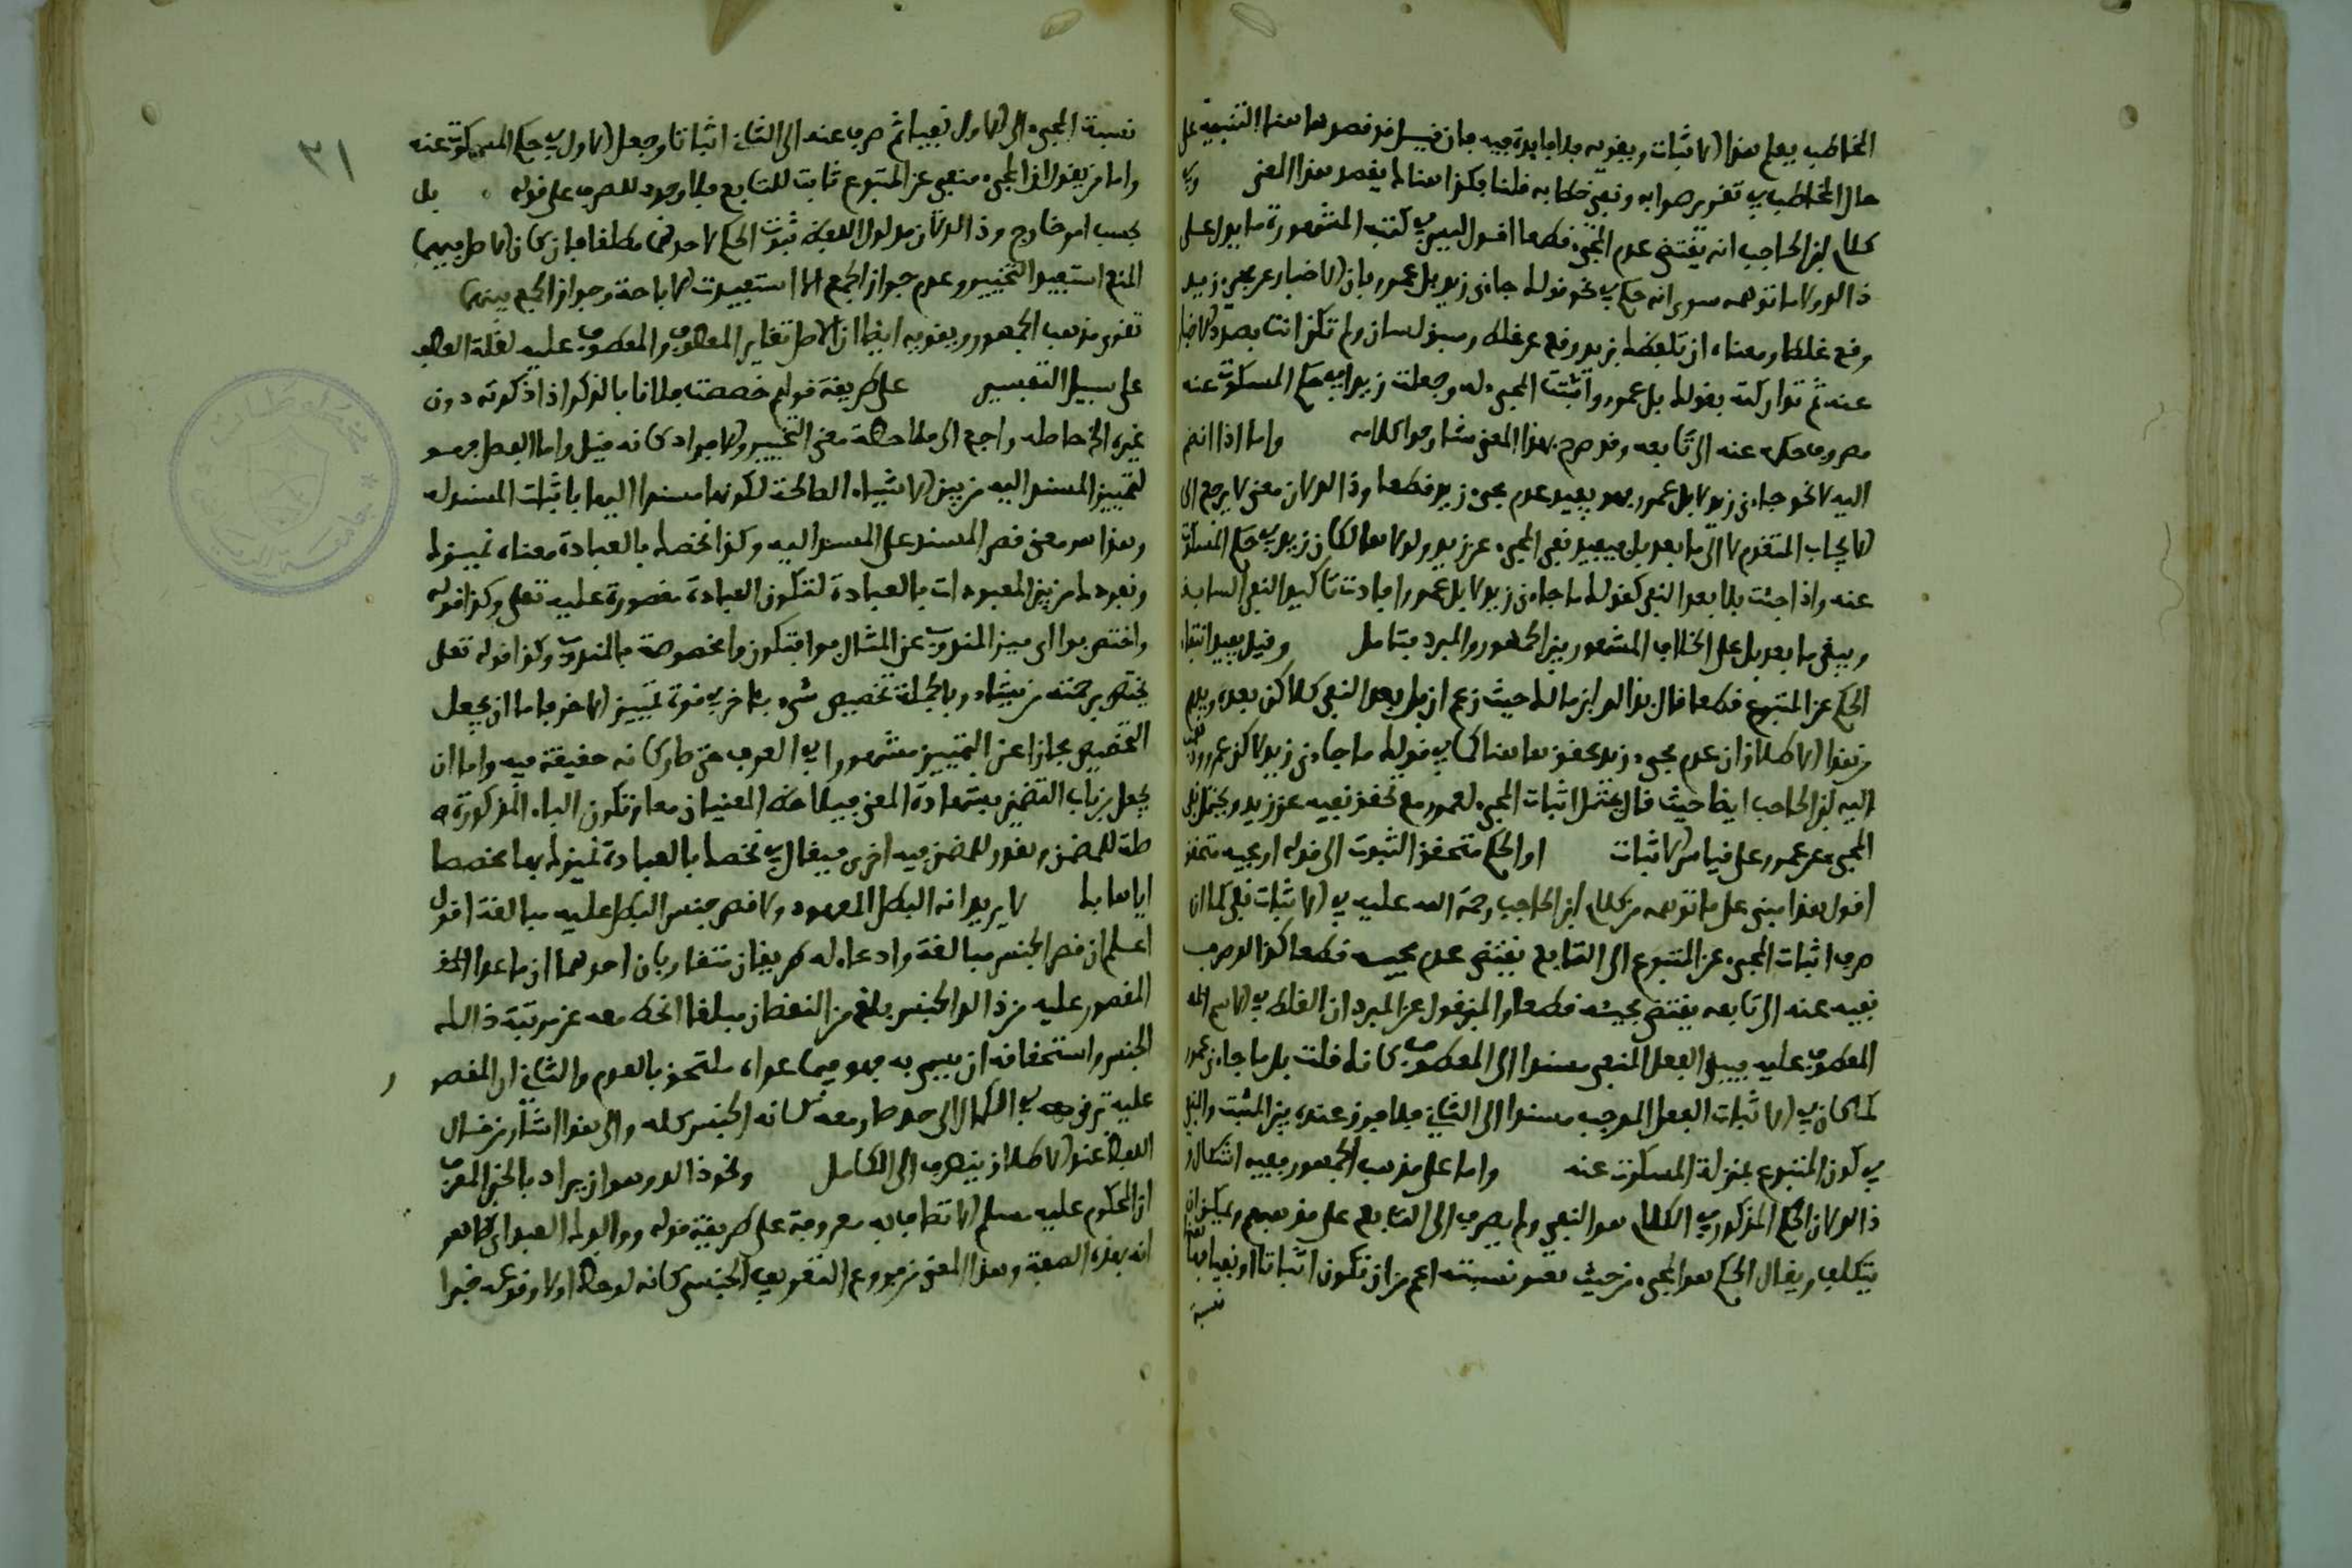 المخاطب يعلم هذا الاثبات وينفيه بلا فايدة فيه فان قيل قد قصد هاهنا التنبيه على
حال المخاطب في تقرير صوابه ونفي خطابه قلنا فكذا هنا لم يقصد هذا المعنى وفي
كلام ابن الحاجب انه يقتضي عدم المجيء قطعا اقول ليس في كتبه المشهورة ما يدل على
ذالك ولا ما توهمه سوى انه حكم في نحو قولك جاءني زيد بل عمرو بان الاخبار عن مجيء زيد
وقع غلطا ومعناه ان تلفظك بزيد وقع عن غلط وسبق لسان ولم تكن انت بصدد الاخبار
عنه ثم تداركته بقولك بل عمرو واثبتت المجيء له وجعلت زيدا في حكم المسكوت عنه
مصروف حكمه عنه الى تابعه وقد صرح بهذا المعنى شارحوا كلامه واما اذا انضم
اليه لا نحو جاءني زيد لا بل عمرو فهو يفيد عدم مجيء زيد قطعا وذالك لان معنى لا يرجع الى
الايجاب المتقدم لا الى ما بعد بل فيفيد نفي المجيء عن زيد ولولا هي لكان زيد في حكم المسكوت
عنه واذا جئت بلا بعد النفي كقولك ما جاءني زيد لا بل عمرو افادت تاكيد النفي السابق
ويبقى ما بعد بل على الخلاف المشهور بين الجمهور والمبرد فتامل وقيل يفيد انتفاء
الحكم عن المتبوع قطعا قال بذالك ابن مالك حيث زعم ان بل بعد النفي كلاكن بعده ويلزم
من هذا الاطلاق ان عدم مجيء زيد محقق هاهنا كما في قولك ما جاءني زيد لاكن عمرو وذهب
اليه ابن الحاجب ايضا حيث قال يحتمل اثبات المجيء لعمرو مع تحقق نفيه عن زيد ويحتمل نفي
المجيء عن عمرو على قياس الاثبات او الحكم متحقق الثبوت الى قوله او مجيه متحقق
اقول هذا مبني على ما توهمه من كلام ابن الحاجب رحمة الله عليه في الاثبات فلي كما ان
صرف اثبات المجيء عن المتبوع الى التابع يقتضي عدم مجيه قطعا كذالك صرف
نفيه عنه الى تابعه يقتضي مجيئه قطعا والمنقول عن المبرد ان الغلط في الاسم
المعطوف عليه فيبقى الفعل المنفي مسندا الى المعطوف كانك قلت بل ما جاءني عمرو
كما كان في الاثبات الفعل الموجب مسندا الى الثاني فلا فرق عنده بين المثبت والنفي
في كون المتبوع بمنزلة المسكوت عنه واما على مذهب الجمهور ففيه اشكال
ذالك لان الحكم المذكور في الكلام هو النفي ولم يصرف الى التابع على مذهبهم ويمكن ان
يتكلف ويقال الحكم هو المجيء من حيث هو نسبته اعم من ان تكون اثباتا او نفيا
نسبة
٣١
نسبة المجيء الى الاول نفيا ثم صرف عنه الى الثاني اثباتا وجعل الاول في حكم المسكوت عنه
واما من يقول ان المجيء منفي عن المتبوع ثابت للتابع فلا وجود للصرف على قوله بل
بحسب امر خارج وذالك لان مدلول اللفظ ثبوت الحكم لاحدهما مطلقا فان كان الاصل فيهما
المنع استفيد التخيير وعدم جواز الجمع والا استفيدت الاباحة وجواز الجمع بينهما
تقوي مذهب الجمهور ويقويه ايضا ان الاصل تغاير المعطوف والمعطوف عليه لغلة العطف
على سبيل التفسير على طريقة قولهم خصصت فلانا بالذكر اذا ذكرته دون
غيره الحاصله راجع الى ملاحظة معنى التمييز والافراد كانه قيل واما الفصل فهو
لتمييز المسند اليه من بين الاشياء الصالحة لكونها مسندا اليها باثبات المسند له
وهذا هو معنى قصر المسند على المسند اليه وكذا نخصك بالعبادة معناه نميزك
ونفردك من بين المعبودات بالعبادة لتكون العبادة مقصورة عليه تعلى وكذا قوله
واختص بوا اي ميز المندوب عن المثال بوا فتكون وا مخصوصة بالمندوب وكذا قوله تعلى
يختص برحمته من يشاء وبالجملة تخصيص شيء بآخر في قوة تمييز الاخر به اما ان يجعل
التخصيص مجازا عن التمييز مشهورا في العرف حتى صار كانه حقيقة فيه واما ان
يجعل من باب التضمين بشهادة المعنى فيلاحظ المعنيان معا وتكون الباء المذكورة ص
طة للمضمن وتقدر للمضمن فيه اخرى فيقال في نخصك بالعبادة نميزك بها مخصصا
اياها بك لا يريد انه البطل المعهود ولا قصر جنس البطل عليه مبالغة اقول
اعلم ان قصر الجنس مبالغة وادعاء له طريقان متقاربان احدهما ان ما عدا
المقصور عليه من ذالك الجنس بلغ من النقصان مبلغا انحط معه عن مرتبة ذالك
الجنس واستحقاقه ان يسمى به فهو فيما عداه ملتحق بالعدم والثاني ان المقصور
عليه ترقى في الكمال الى حد صار معه كانه الجنس كله والى هذا اشار من قال
اللفظ عند الاطلاق ينصرف الى الكامل ونحو ذالك وهو ان يراد بالخبر المعرف
ان المحكوم عليه مسلم الاتصاف به معروفة على طريقة قوله ووالدك العبد اي ظاهر
انه بهذه الصفة وهذا المعنى من فروع التعريف الجنسي كانه لوحظ اولا وقوعه خبرا